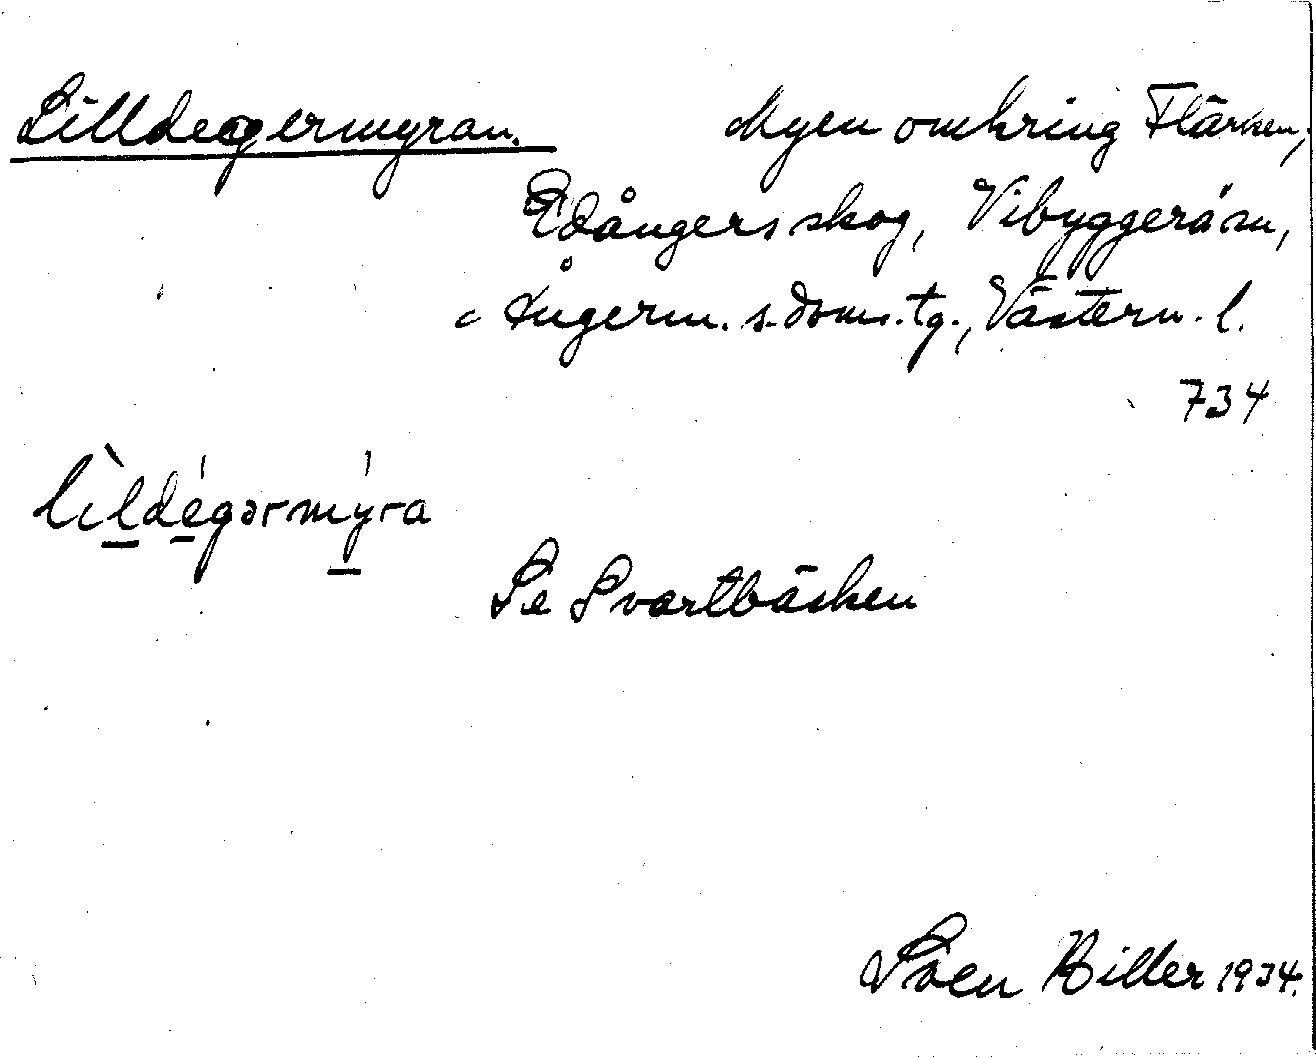 Lilldegermyran. Myen omkring Flärken,
Edångers skog, Vibyggerå sn,
Ångerm. s. doms. tg., Västern. l.
734
lìldégərmýra
Se Svartbäcken
Sven Hiller 1934.